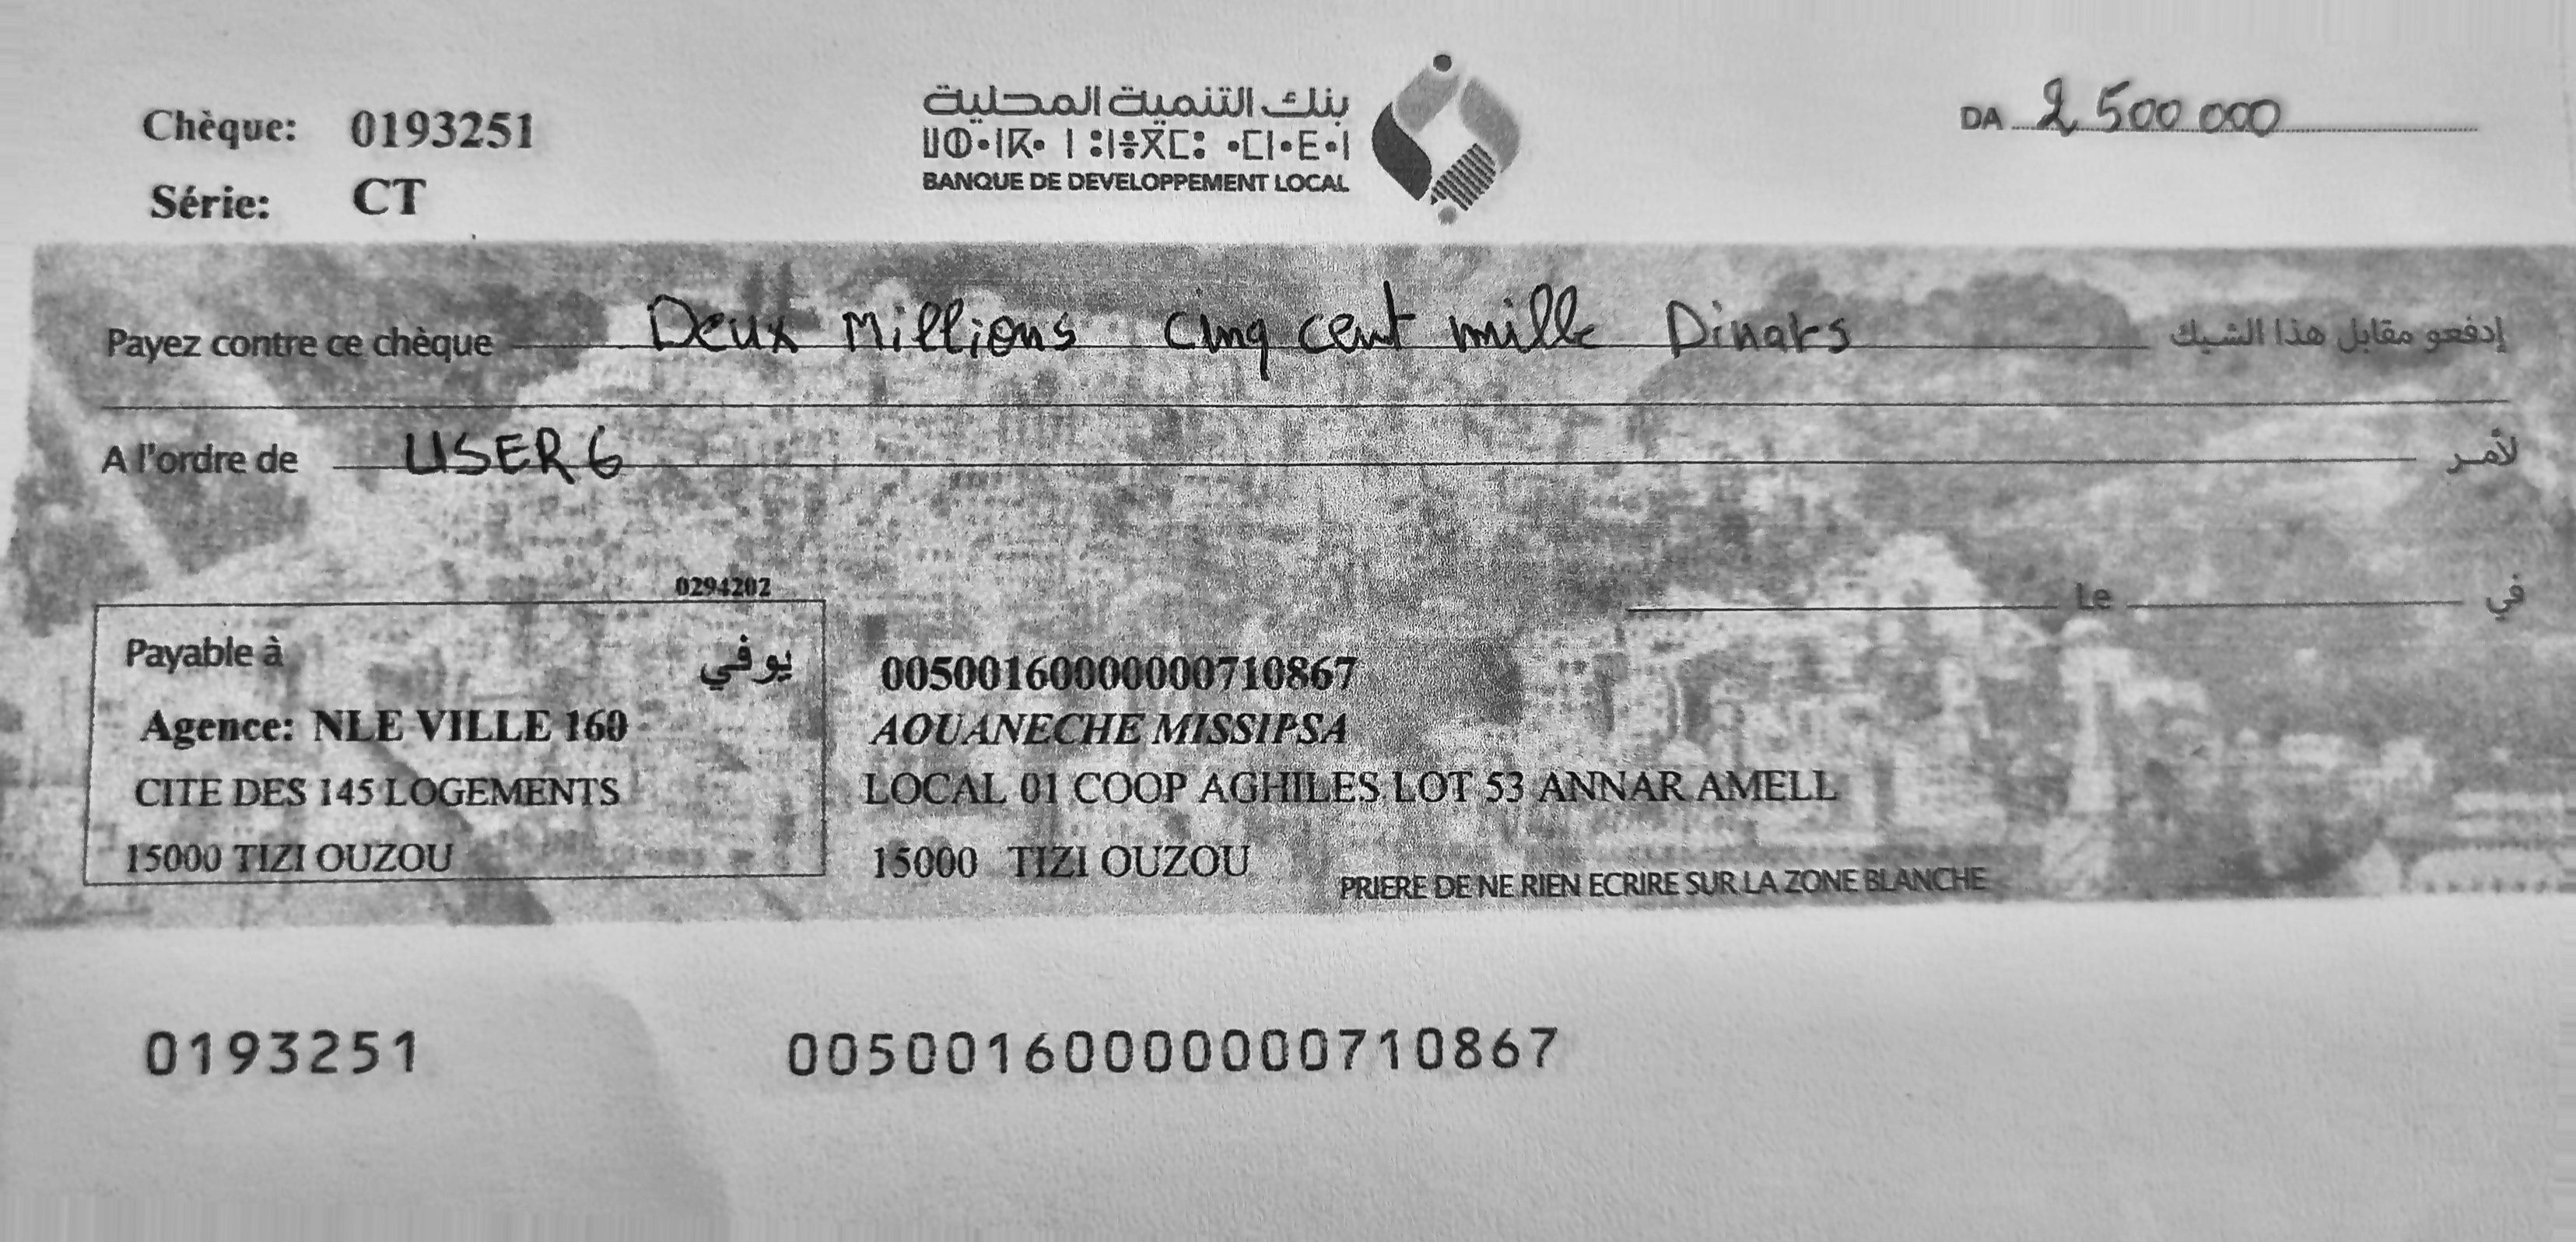 Chèque: 0193251
Série: CT
بنك التنمية المحلية
ⵡⵀ•ⵏⴽ• ⵏ ⵓⵏⴻⴳⵎⵓ •ⵎⵏ•ⴹ•ⵏ
BANQUE DE DEVELOPPEMENT LOCAL
DA 2 500 000
Payez contre ce chèque Deux Millions cinq cent mille Dinars إدفعو مقابل هذا الشيك
A l'ordre de USER 6 لأمر
Le في
0294202
Payable à يوفي
Agence: NLE VILLE 160
CITE DES 145 LOGEMENTS
15000 TIZI OUZOU
00500160000000710867
AOUANECHE MISSIPSA
LOCAL 01 COOP AGHILES LOT 53 ANNAR AMELL
15000 TIZI OUZOU
PRIERE DE NE RIEN ECRIRE SUR LA ZONE BLANCHE
0193251 00500160000000710867